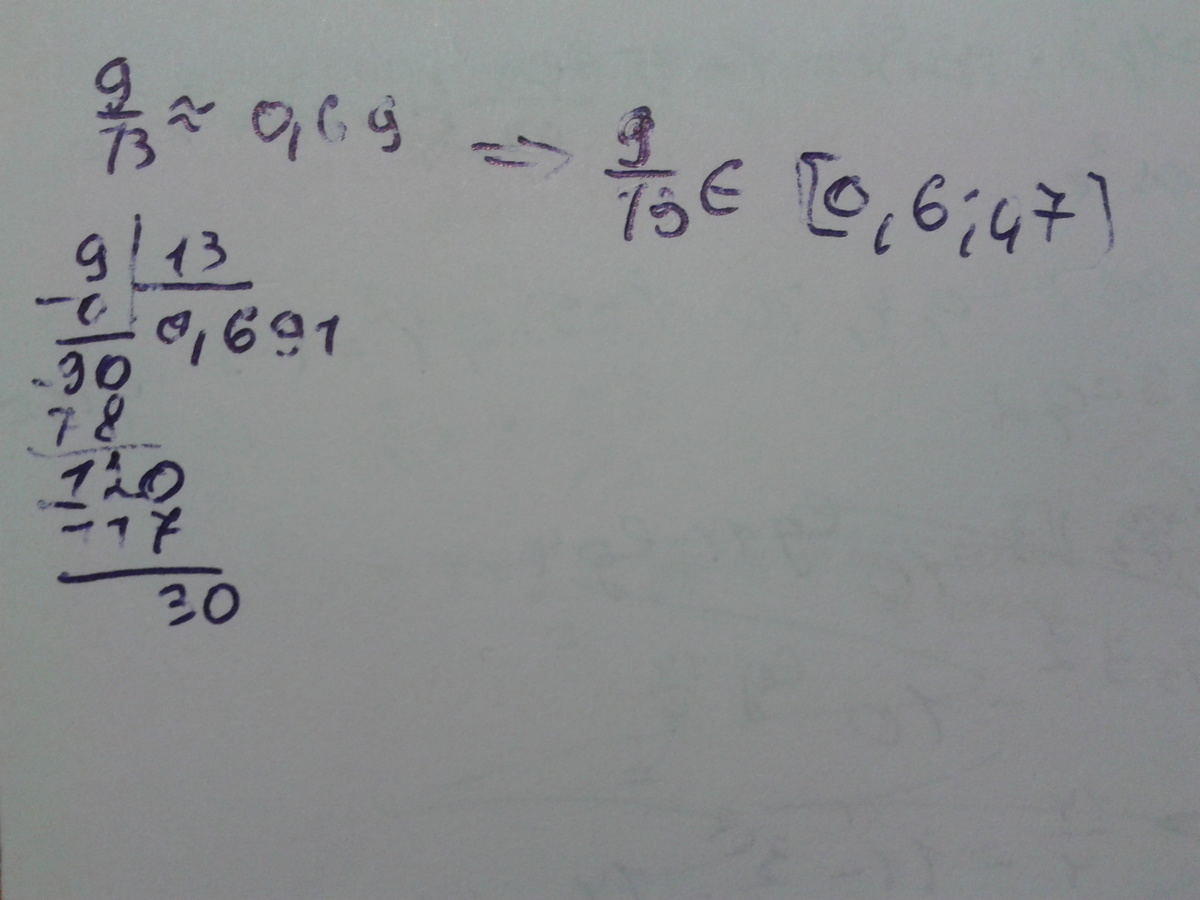 9/13 ≈ 0,69 => 9/13 ∈ [0,6;0,7]
9 | 13
- 0 0,691
-90
78
120
-117
30